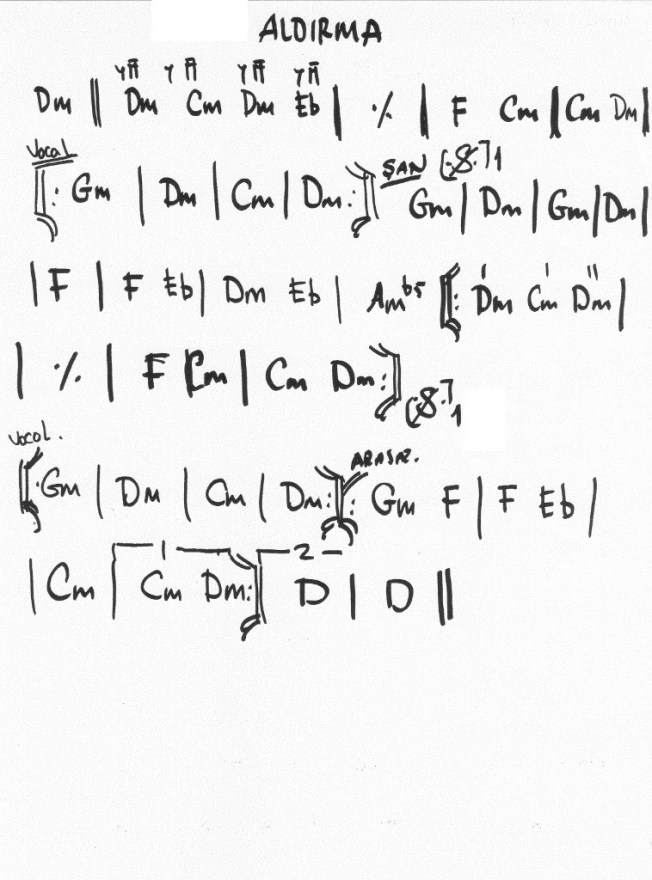 ALDIRMA
Dm || Dm Cm Dm Eb | ٪ | F Cm | Cm Dm |
Vocal
[: Gm | Dm | Cm | Dm :] ŞAN Gm | Dm | Gm | Dm |
| F | F Eb | Dm Eb | Am b5 [: Dm Cm Dm |
| ٪ | F Cm | Cm Dm :]
Vocal.
[: Gm | Dm | Cm | Dm :][: ARASAZ. Gm F | F Eb |
1 2
| Cm | Cm Dm :] D | D ||